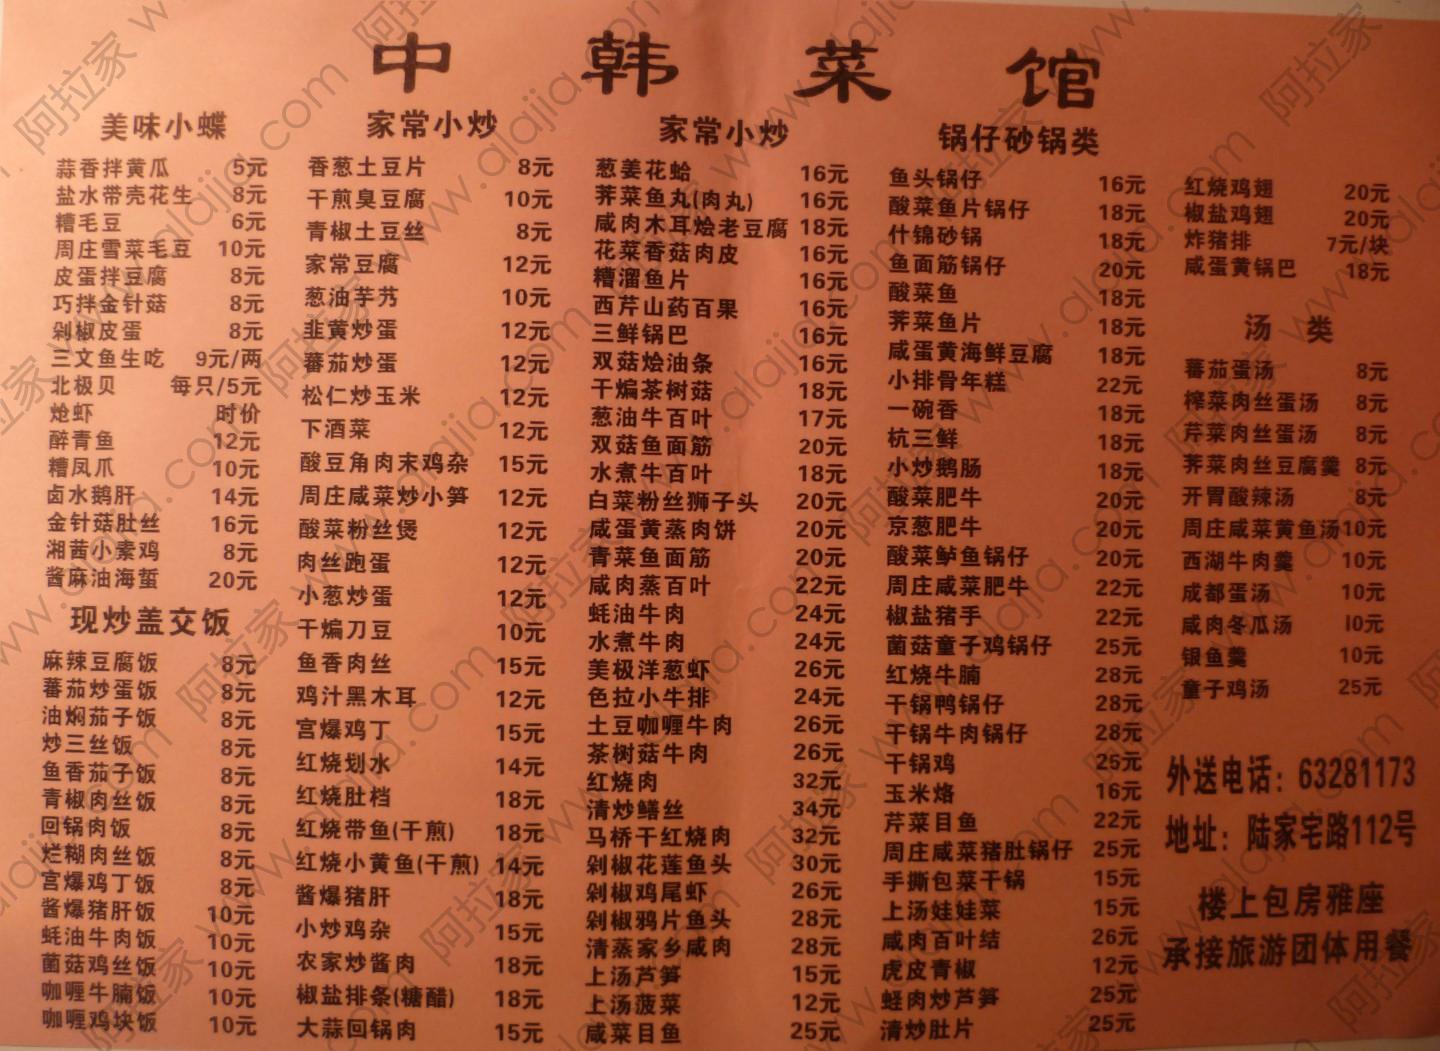 中韩菜馆
美味小蝶
蒜香拌黄瓜 5元
盐水带壳花生 8元
糟毛豆 6元
周庄雪菜毛豆 10元
皮蛋拌豆腐 8元
巧拌金针菇 8元
剁椒皮蛋 8元
三文鱼生吃 9元/两
北极贝 每只/5元
炝虾 时价
醉青鱼 12元
糟凤爪 10元
卤水鹅肝 14元
金针菇肚丝 16元
湘茜小素鸡 8元
酱麻油海蜇 20元
现炒盖交饭
麻辣豆腐饭 8元
蕃茄炒蛋饭 8元
油焖茄子饭 8元
炒三丝饭 8元
鱼香茄子饭 8元
青椒肉丝饭 8元
回锅肉饭 8元
烂糊肉丝饭 8元
宫爆鸡丁饭 8元
酱爆猪肝饭 10元
蚝油牛肉饭 10元
菌菇鸡丝饭 10元
咖喱牛腩饭 10元
咖喱鸡块饭 10元
家常小炒
香葱土豆片 8元
干煎臭豆腐 10元
青椒土豆丝 8元
家常豆腐 12元
葱油芋艿 10元
韭黄炒蛋 12元
蕃茄炒蛋 12元
松仁炒玉米 12元
下酒菜 12元
酸豆角肉末鸡杂 15元
周庄咸菜炒小笋 12元
酸菜粉丝煲 12元
肉丝跑蛋 12元
小葱炒蛋 12元
干煸刀豆 10元
鱼香肉丝 15元
鸡汁黑木耳 12元
宫爆鸡丁 15元
红烧划水 14元
红烧肚档 18元
红烧带鱼(干煎) 18元
红烧小黄鱼(干煎) 14元
酱爆猪肝 18元
小炒鸡杂 15元
农家炒酱肉 18元
椒盐排条(糖醋) 18元
大蒜回锅肉 15元
家常小炒
葱姜花蛤 16元
荠菜鱼丸(肉丸) 16元
咸肉木耳烩老豆腐 18元
花菜香菇肉皮 16元
糟溜鱼片 16元
西芹山药百果 16元
三鲜锅巴 16元
双菇烩油条 16元
干煸茶树菇 18元
葱油牛百叶 17元
双菇鱼面筋 20元
水煮牛百叶 18元
白菜粉丝狮子头 20元
咸蛋黄蒸肉饼 20元
青菜鱼面筋 20元
咸肉蒸百叶 22元
蚝油牛肉 24元
水煮牛肉 24元
美极洋葱虾 26元
色拉小牛排 24元
土豆咖喱牛肉 26元
茶树菇牛肉 26元
红烧肉 32元
清炒鳝丝 34元
马桥干红烧肉 32元
剁椒花莲鱼头 30元
剁椒鸡尾虾 26元
剁椒鸦片鱼头 28元
清蒸家乡咸肉 28元
上汤芦笋 15元
上汤菠菜 12元
咸菜目鱼 25元
锅仔砂锅类
鱼头锅仔 16元
酸菜鱼片锅仔 18元
什锦砂锅 18元
鱼面筋锅仔 20元
酸菜鱼 18元
荠菜鱼片 18元
咸蛋黄海鲜豆腐 18元
小排骨年糕 22元
一碗香 18元
杭三鲜 18元
小炒鹅肠 18元
酸菜肥牛 20元
京葱肥牛 20元
酸菜鲈鱼锅仔 20元
周庄咸菜肥牛 22元
椒盐猪手 22元
菌菇童子鸡锅仔 25元
红烧牛腩 28元
干锅鸭锅仔 28元
干锅牛肉锅仔 28元
干锅鸡 25元
玉米烙 16元
芹菜目鱼 22元
周庄咸菜猪肚锅仔 25元
手撕包菜干锅 15元
上汤娃娃菜 15元
咸肉百叶结 26元
虎皮青椒 12元
蛏肉炒芦笋 25元
清炒肚片 25元
红烧鸡翅 20元
椒盐鸡翅 20元
炸猪排 7元/块
咸蛋黄锅巴 18元
汤 类
蕃茄蛋汤 8元
榨菜肉丝蛋汤 8元
芹菜肉丝蛋汤 8元
荠菜肉丝豆腐羹 8元
开胃酸辣汤 8元
周庄咸菜黄鱼汤 10元
西湖牛肉羹 10元
成都蛋汤 10元
咸肉冬瓜汤 10元
银鱼羹 10元
童子鸡汤 25元
外送电话：63281173
地址：陆家宅路112号
楼上包房雅座
承接旅游团体用餐
阿拉家 www.alajia.com